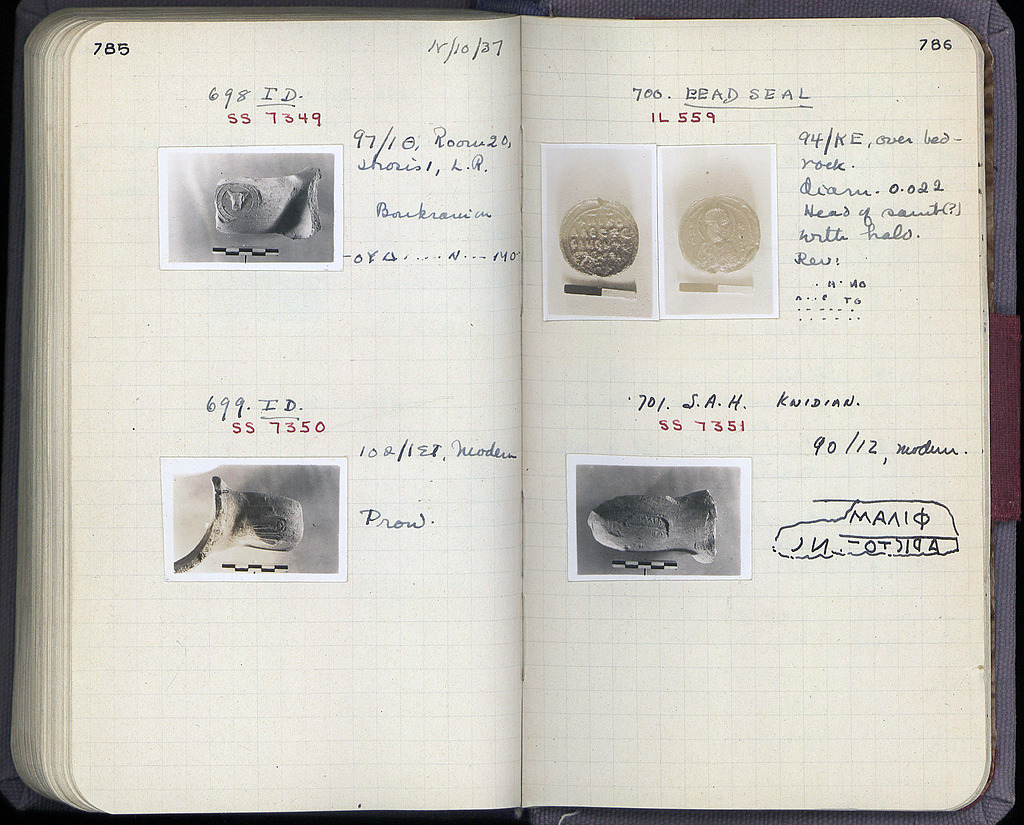 785
698 I D.
SS 7349
97/1Θ, Room 20,
L.R.
Boukranion
699. I D.
SS 7350
102/ Modern
Prow.
786
700. LEAD SEAL
IL 559
94/ΚΕ, over bed-
rock.
diam. 0.022
Head of saint(?)
with halo.
Rev:
701. S.A.H. KNIDIAN.
SS 7351
90/12, modern.